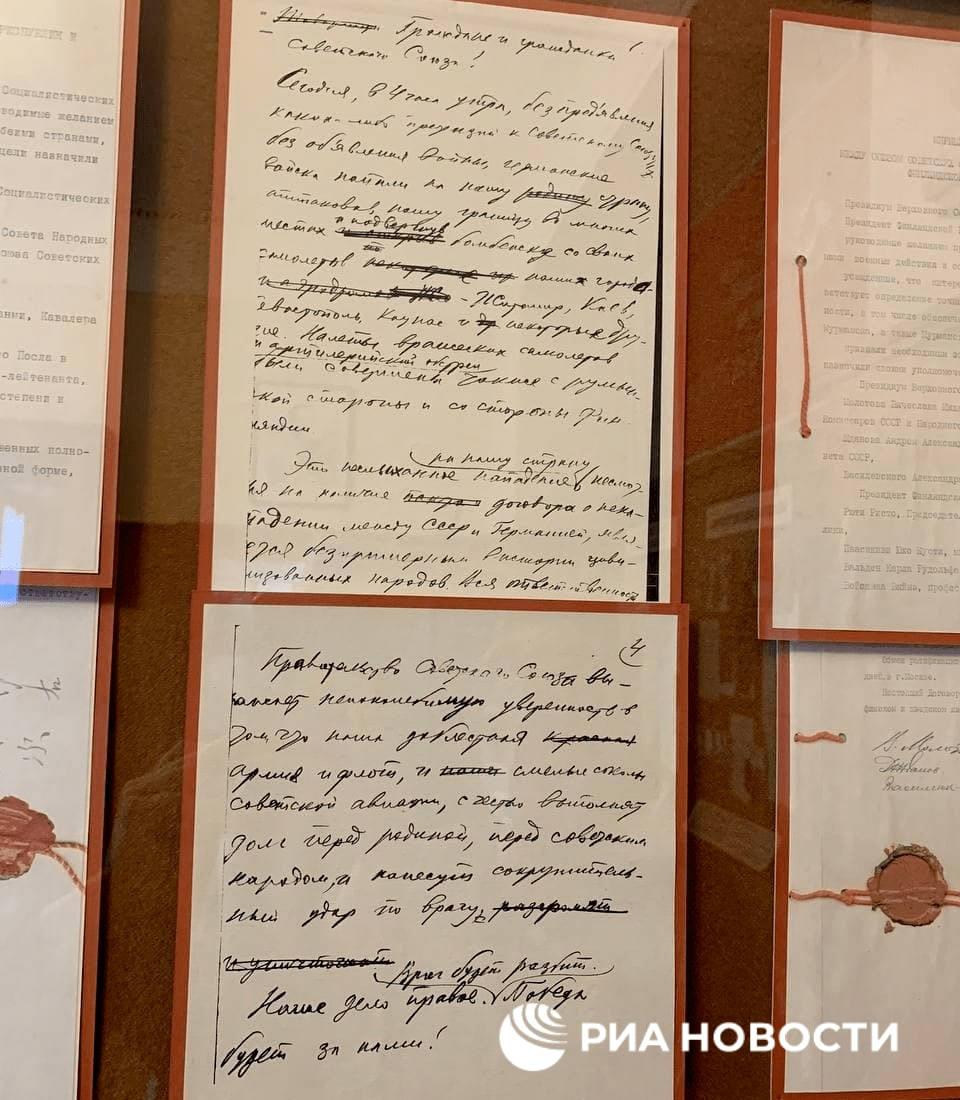 Социалистических
водимые желанием
беими странами,
цели назначили
Социалистических
Совета Народных
оюза Советских
ании, Кавалера
го Посла в
-лейтенанта,
степени и
венных полно-
ной форме,
Граждане и гражданки
Советского Союза!
Сегодня, в 4 часа утра, без предъявления
каких-либо претензий к Советскому Союзу
без объявления войны, германские
войска напали на нашу родину страну,
атаковав, нашу границу во многих
местах и подвергнув бомбежке со своих
самолетов наши города
и аэродромы - Житомир, Киев,
Севастополь, Каунас и др некоторые дру-
гие. Налеты вражеских самолетов
и артиллерийский обстрел
были совершены также с румын-
ской стороны и со стороны Фин-
ляндии
на нашу страну
Это неслыханное нападение, несмот-
ря на наличие договора о нена-
падении между СССР и Германией, явля-
ется беспримерным в истории циви-
лизованных народов. Вся ответственность
4
Правительство Советского Союза вы-
ражает непоколебимую уверенность в
том, что наша доблестная красная
армия и флот, и наши смелые соколы
советской авиации, с честью выполнят
долг перед родиной, перед советским
народом, и нанесут сокрушитель-
ный удар по врагу, разгромят
и уничтожат
Враг будет разбит.
Наше дело правое. Победа
будет за нами!
МЕЖДУ СОЮЗОМ СОВЕТСКИХ
ФИНЛЯНДСКОЙ
Президиум Верховного Со
Президент Финляндской
руководимые желанием пр
ными военные действия и со
убежденные, что интере
ветствует определение точн
ности, в том числе обеспече
Мурманска, а также Мурманск
признали необходимым в
назначили своими уполномоче
Президиум Верховного
Молотова Вячеслава Миха
Комиссаров СССР и Народного
Жданова Андрея Алексан
вета СССР,
Василевского Александр
Президент Финляндской
Рюти Ристо, Председател
лики,
Паасикиви Юхо Кусти, ми
Вальден Карла Рудольфа
Войонмаа Вяйнё, професс
Обмен ратификацион
дней, в г.Москве.
Настоящий Договор
финском и шведском яз
РИА НОВОСТИ